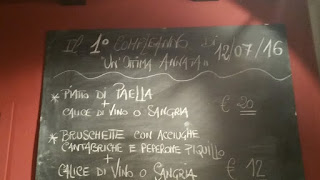 IL 1° COMPLEANNO di
"UN'OTTIMA ANNATA" 12/07/16
* PIATTO DI PAELLA
+
CALICE DI VINO O SANGRIA € 20
* BRUSCHETTE CON ACCIUGHE
CANTABRICHE E PEPERONE PIQUILLO
+
CALICE DI VINO O SANGRIA € 12